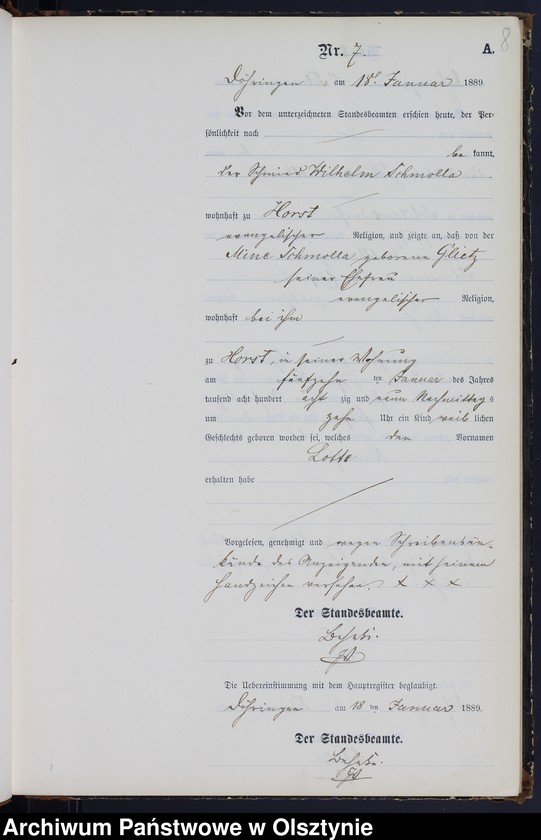 8
Nr. 7. A.
Döhringen am 18t Januar 1889.
Vor dem unterzeichneten Standesbeamten erschien heute, der Per-
sönlichkeit nach
be kannt,
der Schmied Wilhelm Schmolla
wohnhaft zu Horst
evangelischer Religion, und zeigte an, daß von der
Mine Schmolla geborene Glietz
seiner Ehefrau
evangelischer Religion,
wohnhaft bei ihm
zu Horst, in seiner Wohnung
am fünfzehn ten Januar des Jahres
tausend acht hundert acht zig und neun Nachmittags
um zehn Uhr ein Kind weib lichen
Geschlechts geboren worden sei, welches den Vornamen
Lotte
erhalten habe
Vorgelesen, genehmigt und wegen Schreibensun-
kunde des Anzeigenden, mit seinem
Handzeichen versehen. x x x
Der Standesbeamte.
Die Uebereinstimmung mit dem Hauptregister beglaubigt.
Döhringen am 18 ten Januar 1889.
Der Standesbeamte.
Archiwum Państwowe w Olsztynie